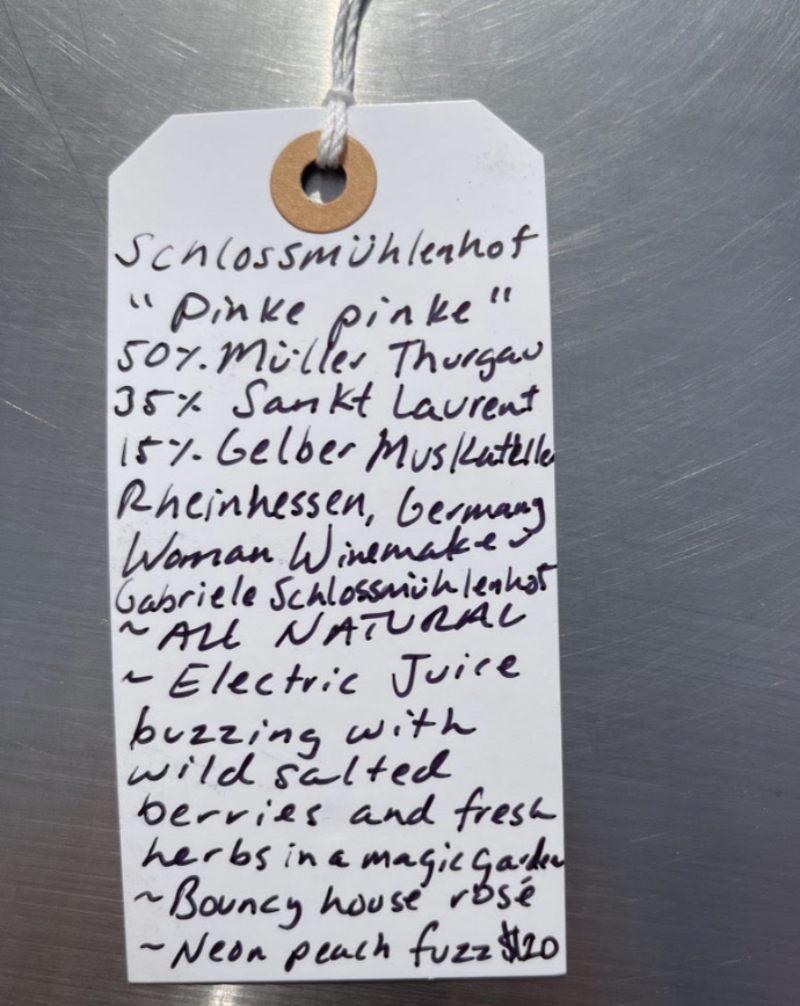 Schlossmühlenhof
"Pinke pinke"
50% Müller Thurgau
35% Sankt Laurent
15% Gelber Muskateller
Rheinhessen, Germany
Woman Winemaker
Gabriele Schlossmühlenhof
~ ALL NATURAL
~ Electric Juice
buzzing with
wild salted
berries and fresh
herbs in a magic garden
~Bouncy house rosé
~Neon peach fuzz $120